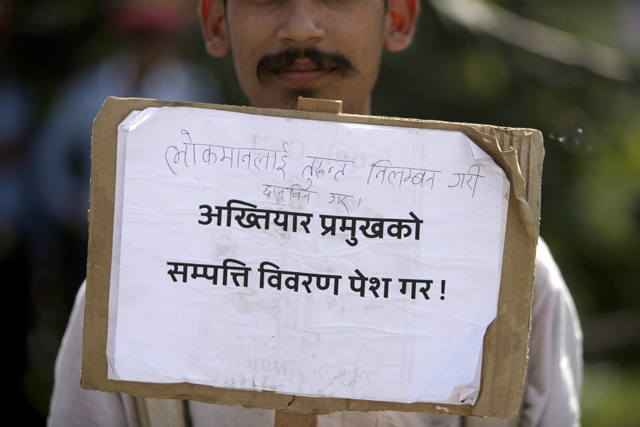 लोकमानलाई तुरुन्त निलम्बन गरी
छानविन गर!
अख्तियार प्रमुखको
सम्पत्ति विवरण पेश गर !